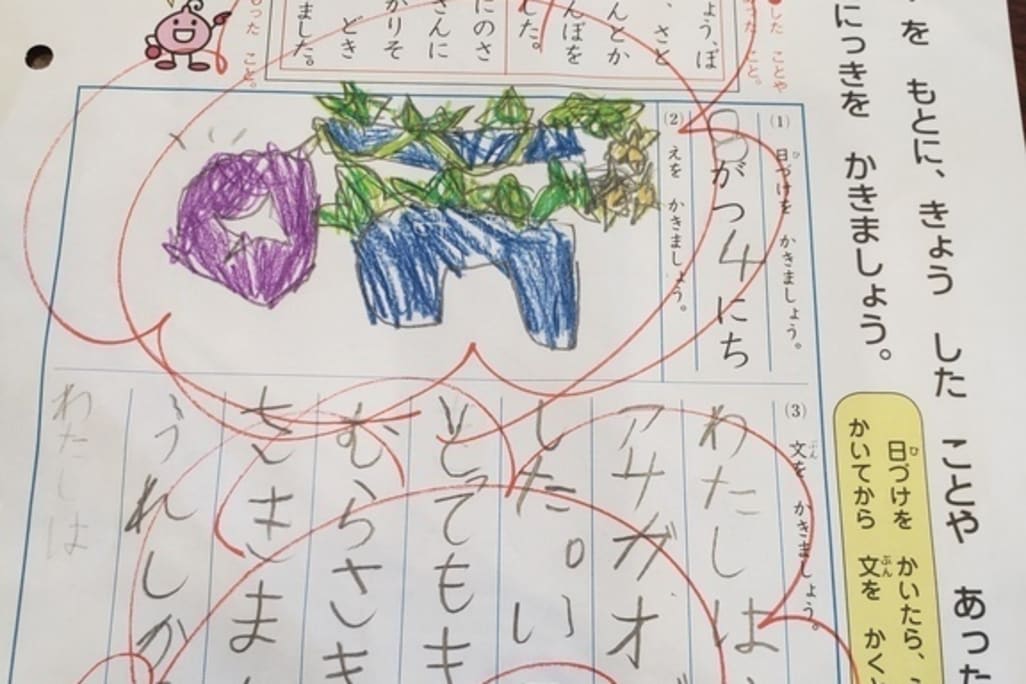 を もとに、きょう した ことや あった
にっきを かきましょう。
日づけを かいたら、
かいてから 文を かくと
した ことや
った こと。
ょう、ぼ
、さと
んとか
んぼを
した。
にのさ
さんに
かりそ
どき
ました。
もった こと。
(1) 日づけを かきましょう。
8がつ4にち
(2) えを かきましょう。
(3) 文を かきましょう。
わたしは
アサガオ
した。い
とてもき
むらさき
うれしか
わたしは